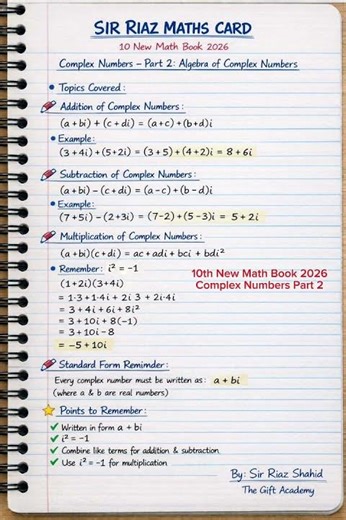 SIR RIAZ MATHS CARD
10 New Math Book 2026
Complex Numbers – Part 2: Algebra of Complex Numbers
• Topics Covered:
Addition of Complex Numbers:
(a + bi) + (c + di) = (a+c) + (b+d)i
• Example:
(3 + 4i) + (5 + 2i) = (3 + 5) + (4 + 2)i = 8 + 6i
Subtraction of Complex Numbers:
(a + bi) – (c + di) = (a – c) + (b – d)i
• Example:
(7 + 5i) – (2 + 3i) = (7–2) + (5 – 3)i = 5 + 2i
Multiplication of Complex Numbers:
(a + bi)(c + di) = ac + adi + bci + bdi²
• Remember: i² = –1
(1 + 2i)(3 + 4i)
= 1·3 + 1·4i + 2i 3 + 2i·4i
= 3 + 4i + 6i + 8i²
= 3 + 10i + 8(–1)
= 3 + 10i – 8
= –5 + 10i
10th New Math Book 2026
Complex Numbers Part 2
Standard Form Reminder:
Every complex number must be written as: a + bi
(where a & b are real numbers)
Points to Remember:
✓ Written in form a + bi
✓ i² = –1
✓ Combine like terms for addition & subtraction
✓ Use i² = –1 for multiplication
By: Sir Riaz Shahid
The Gift Academy